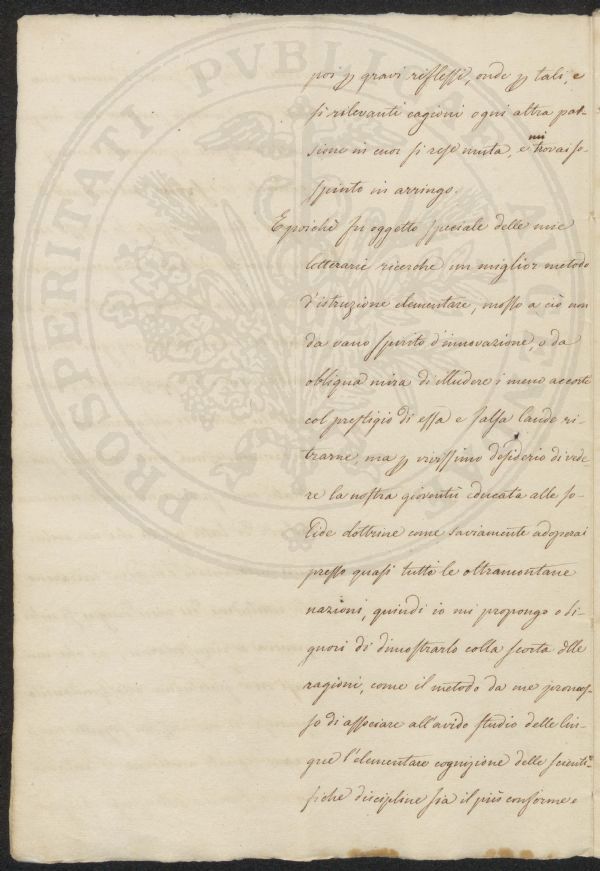 poi p gravi riflessi, onde p tali, e
si rilevanti cagioni ogni altra pas-
sione in cuor si rese muta, e mi trovai so-
spinto in arringo.
E poichè fu oggetto speciale delle mie
letterarie ricerche un miglior metodo
d'istruzione elementare, mosso a ciò non
da vano spirito d'innovazione, o da
obliqua mira di illudere i meno accorti
col prestigio di essa e falsa laude ri-
trarne ma p verissimo desiderio di vede
re la nostra gioventù educata alle so-
lide dottrine come saviamente adoperasi
presso quasi tutte le oltramontane
nazioni, quindi io mi propongo o Si-
gnori di dimostrarlo colla scorta delle
ragioni, come il metodo da me promos-
so di associare all'arido studio delle lin-
gue l'elementare cognizione delle scienti-
fiche discipline sia il più conforme e
PROSPERITATI PUBLICAE